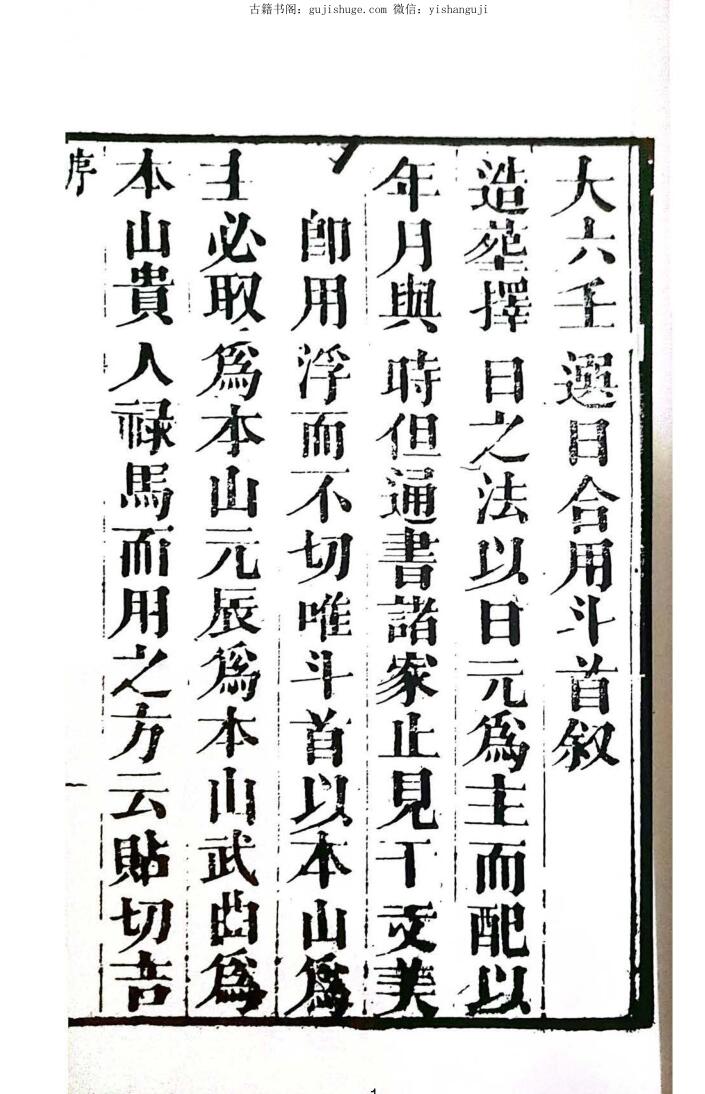 古籍书阁：gujishuge.com 微信：yishanguji
大六壬選日合用斗首叙
造葬擇日之法以日元爲主而配以
年月與時但通書諸家止見干支美
即用浮而不切唯斗首以本山爲
主必取爲本山元辰爲本山武曲爲
本山貴人祿馬而用之方云貼切吉
序
一
1